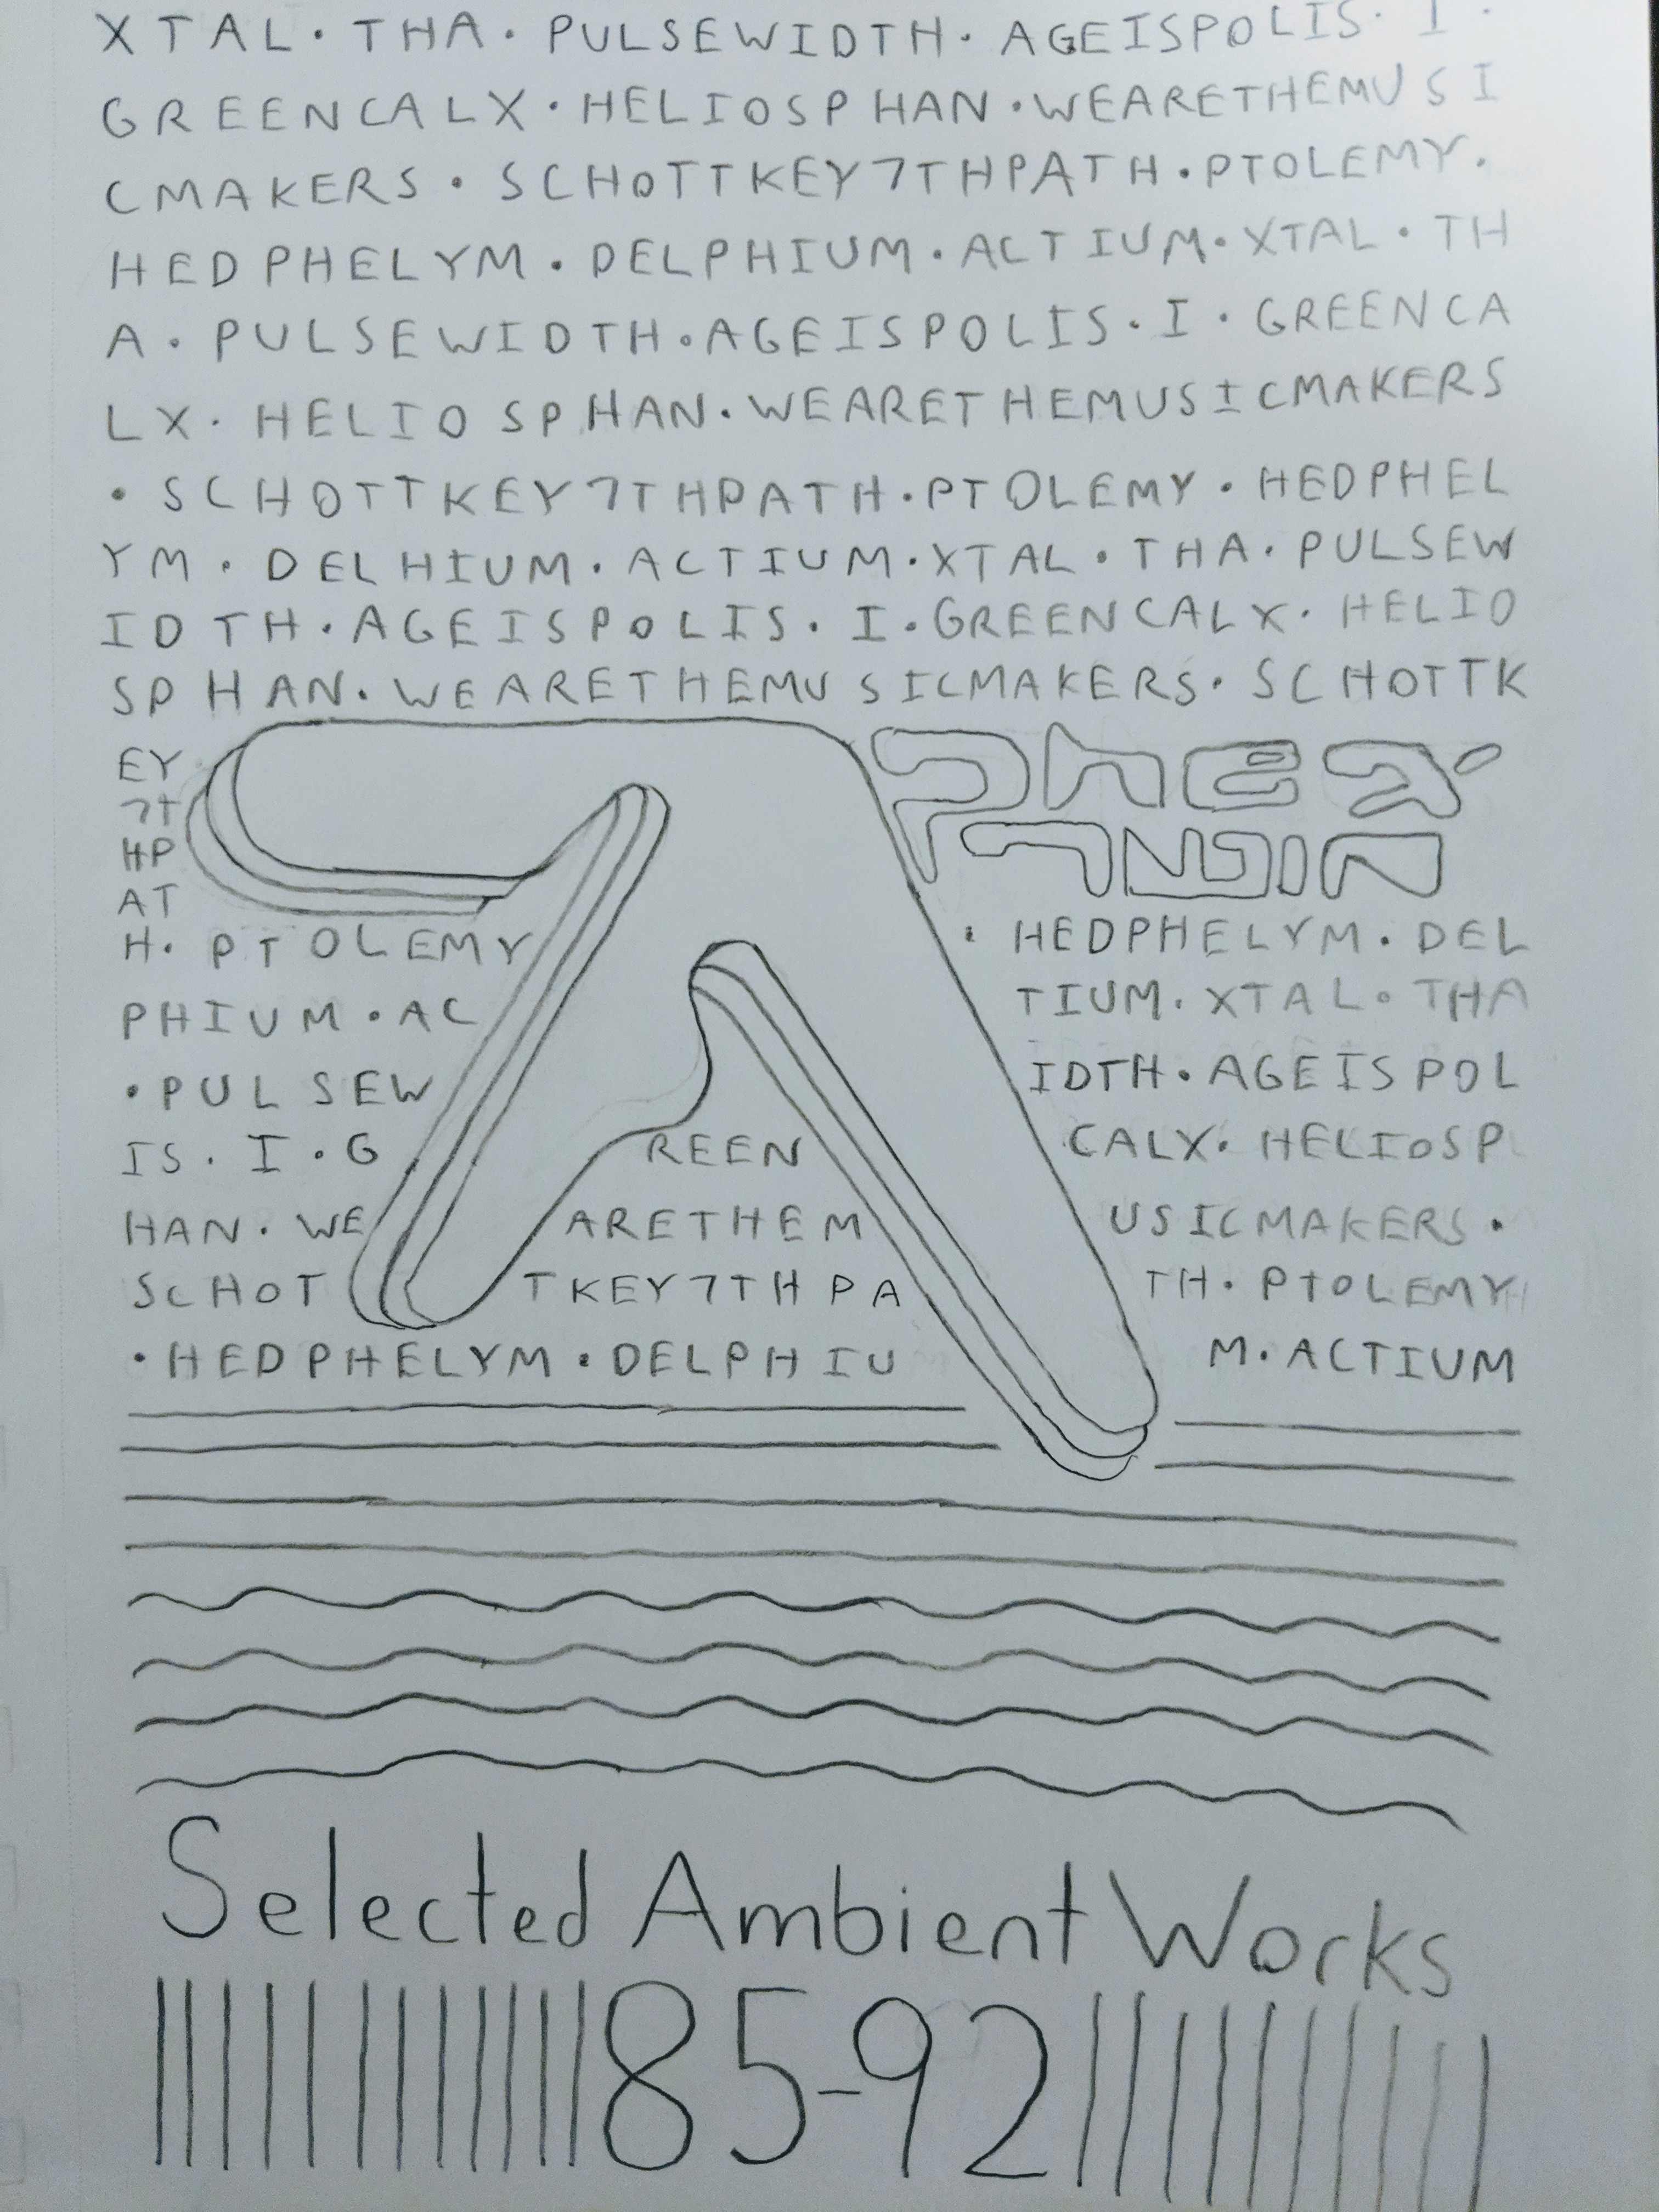 XTAL · THA · PULSEWIDTH · AGEISPOLIS · I ·
GREENCALX · HELIOSPHAN · WEARETHEMUSI
CMAKERS · SCHOTTKEY7THPATH · PTOLEMY ·
HEDPHELYM · DELPHIUM · ACTIUM · XTAL · TH
A · PULSEWIDTH · AGEISPOLIS · I · GREENCA
LX · HELIOSPHAN · WEARETHEMUSICMAKERS
· SCHOTTKEY7THPATH · PTOLEMY · HEDPHEL
YM · DELHIUM · ACTIUM · XTAL · THA · PULSEW
IDTH · AGEISPOLIS · I · GREENCALX · HELIO
SPHAN · WEARETHEMUSICMAKERS · SCHOTTK
EY
7T
HP
AT
H · PTOLEMY · HEDPHELYM · DEL
PHIUM · AC TIUM · XTAL · THA
· PULSEW IDTH · AGEISPOL
IS · I · G REEN CALX · HELIOSP
HAN · WE ARETHEM USICMAKERS ·
SCHOT TKEY7THPA TH · PTOLEMY
· HEDPHELYM · DELPHIU M · ACTIUM
Selected Ambient Works
85-92